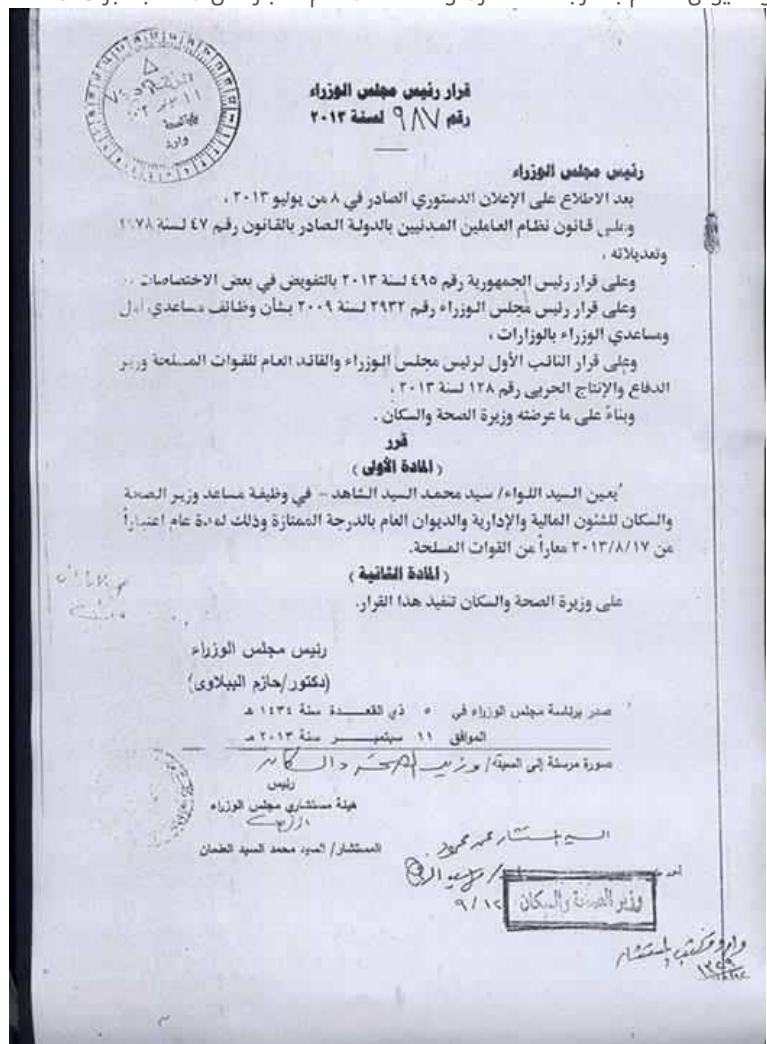 قرار رئيس مجلس الوزراء
رقم ٩٨٧ لسنة ٢٠١٣
رئيس مجلس الوزراء
بعد الاطلاع على الإعلان الدستوري الصادر في ٨ من يوليو ٢٠١٣ ،
وعلى قانون نظام العاملين المدنيين بالدولة الصادر بالقانون رقم ٤٧ لسنة ١٩٧٨
وتعديلاته ،
وعلى قرار رئيس الجمهورية رقم ٤٩٥ لسنة ٢٠١٣ بالتفويض في بعض الاختصاصات
وعلى قرار رئيس مجلس الوزراء رقم ٢٩٣٢ لسنة ٢٠٠٩ بشأن وظائف مساعدي أول
ومساعدي الوزراء بالوزارات ،
وعلى قرار النائب الأول لرئيس مجلس الوزراء والقائد العام للقوات المسلحة وزير
الدفاع والإنتاج الحربى رقم ١٢٨ لسنة ٢٠١٣ ،
وبناءً على ما عرضته وزيرة الصحة والسكان .
قرر
( المادة الأولى )
يعين السيد اللواء/ سيد محمد السيد الشاهد - في وظيفة مساعد وزير الصحة
والسكان للشئون المالية والإدارية والديوان العام بالدرجة الممتازة وذلك لمدة عام اعتباراً
من ٢٠١٣/٨/١٧ معاراً من القوات المسلحة.
( المادة الثانية )
على وزيرة الصحة والسكان تنفيذ هذا القرار.
رئيس مجلس الوزراء
(دكتور/حازم الببلاوى)
صدر برئاسة مجلس الوزراء في ٥ ذي القعدة سنة ١٤٣٤ هـ
الموافق ١١ سبتمبر سنة ٢٠١٣ مـ
صورة مرسلة إلى السيدة/ وزيرة الصحة والسكان
رئيس
هيئة مستشاري مجلس الوزراء
المستشار/ السيد محمد السيد الطحان
السيد المستشار محمد محمود
أحمد
وزير الصحة والسكان
٩/١٢
وارد مكتب المستشار